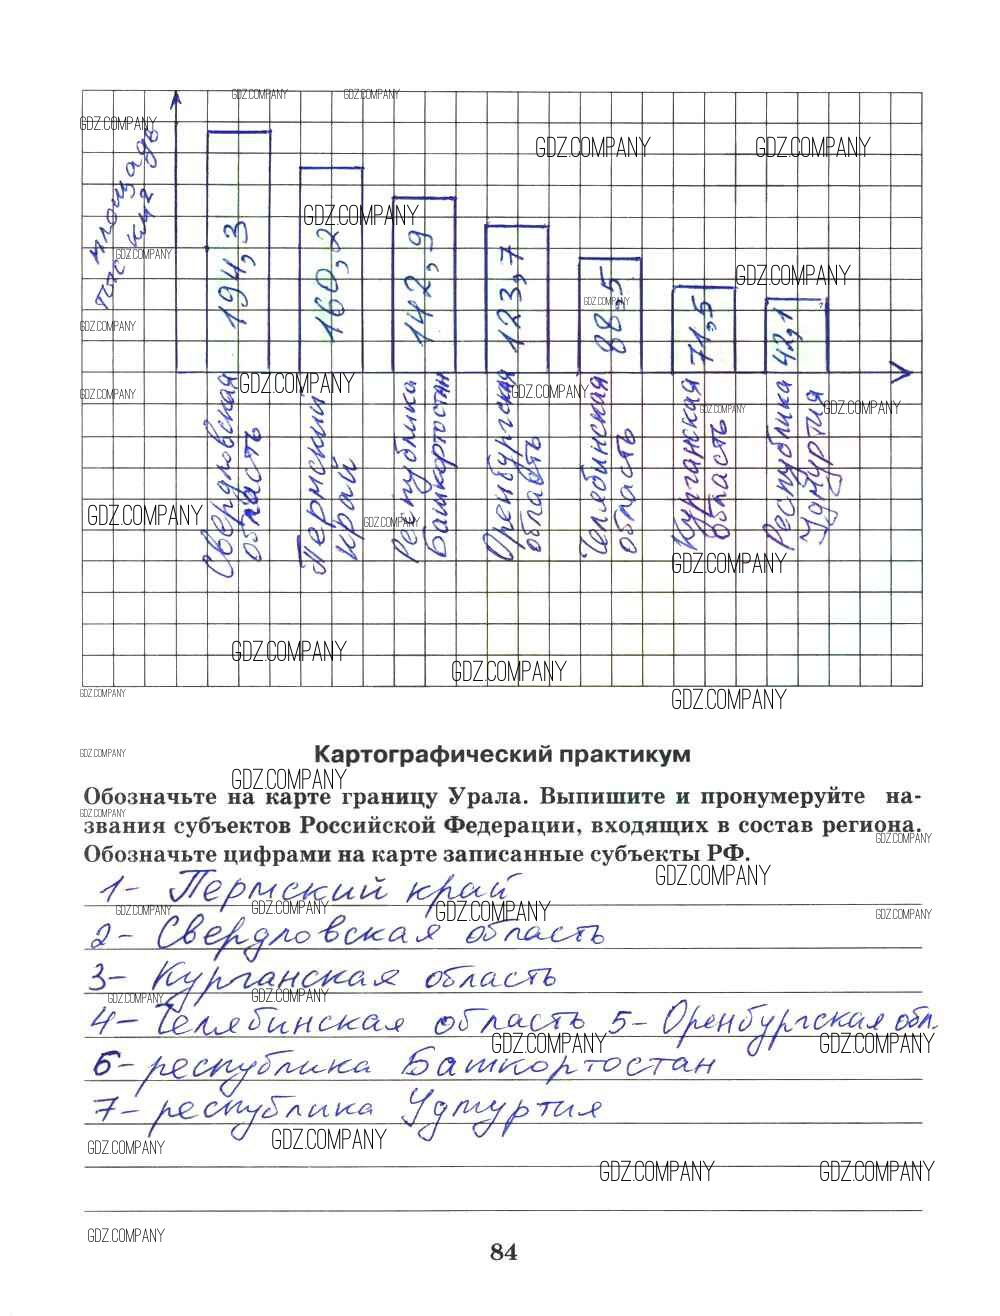 площадь
тыс км²
194,3
160,2
142,9
123,7
88,5
71,5
42,1
Свердловская
область
Пермский
край
Республика
Башкортостан
Оренбургская
область
Челябинская
область
Курганская
область
Республика
Удмуртия
Картографический практикум
Обозначьте на карте границу Урала. Выпишите и пронумеруйте на-
звания субъектов Российской Федерации, входящих в состав региона.
Обозначьте цифрами на карте записанные субъекты РФ.
1- Пермский край
2- Свердловская область
3- Курганская область
4- Челябинская область 5- Оренбургская обл.
6- республика Башкортостан
7- республика Удмуртия
84
GDZ.COMPANY